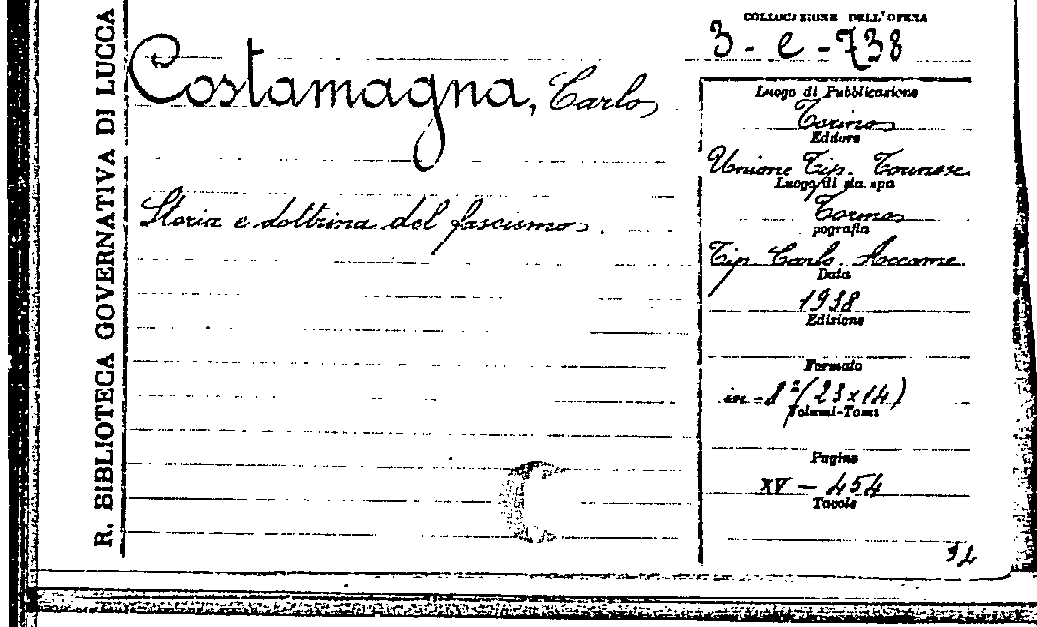 R. BIBLIOTECA GOVERNATIVA DI LUCCA
COLLOCAZIONE DELL'OPERA
3-e-738
Costamagna, Carlo
Storia e dottrina del fascismo.
Luogo di Pubblicazione
Torino
Editore
Unione Tip. Torinese
Luogo di sta spa
Torino
pografia
Tip. Carlo Accame
Data
1938
Edizione
Formato
in-8º (23x14)
Volumi-Tomi
Pagine
XV - 454
Tavole